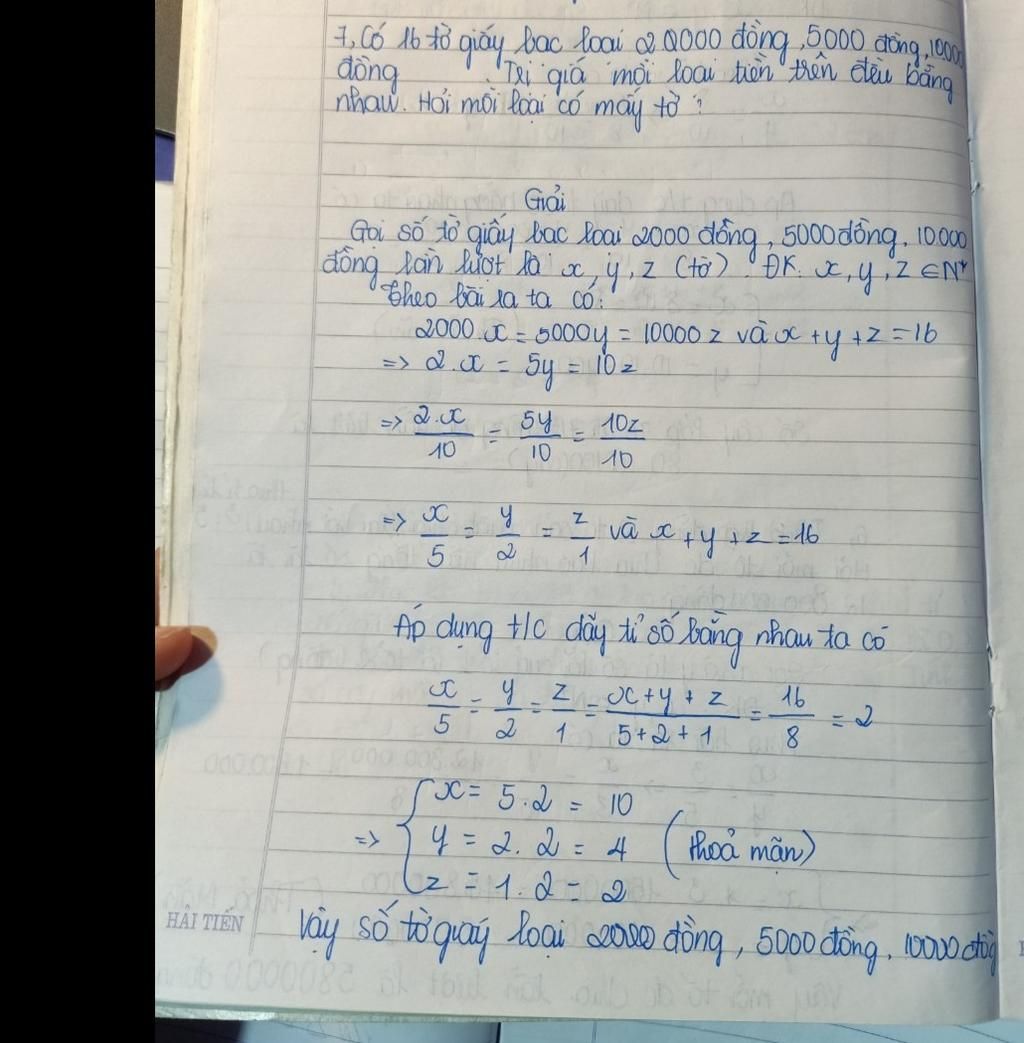 7, Có 16 tờ giấy bac loai 20000 đồng, 5000 đồng, 10000
đồng . Trị giá mỗi loai tiền trên đều bằng
nhau. Hỏi mỗi loại có mấy tờ ?
Giải
Goi số tờ giấy bac loai 2000 đồng, 5000 đồng, 10000
đồng lần lượt là x, y, z (tờ). ĐK. x, y, z ∈ N*
Theo bài ra ta có:
2000.x = 5000y = 10000 z và x + y + z = 16
=> 2.x = 5y = 10z
=> 2.x/10 = 5y/10 = 10z/10
=> x/5 = y/2 = z/1 và x + y + z = 16
Áp dụng t/c dãy tỉ số bằng nhau ta có
x/5 = y/2 = z/1 = x+y+z/5+2+1 = 16/8 = 2
x = 5.2 = 10
=> { y = 2.2 = 4 (thoả mãn)
z = 1.2 = 2
HẢI TIẾN
Vậy số tờ giấy loại 2000 đồng, 5000 đồng, 10000 đồng